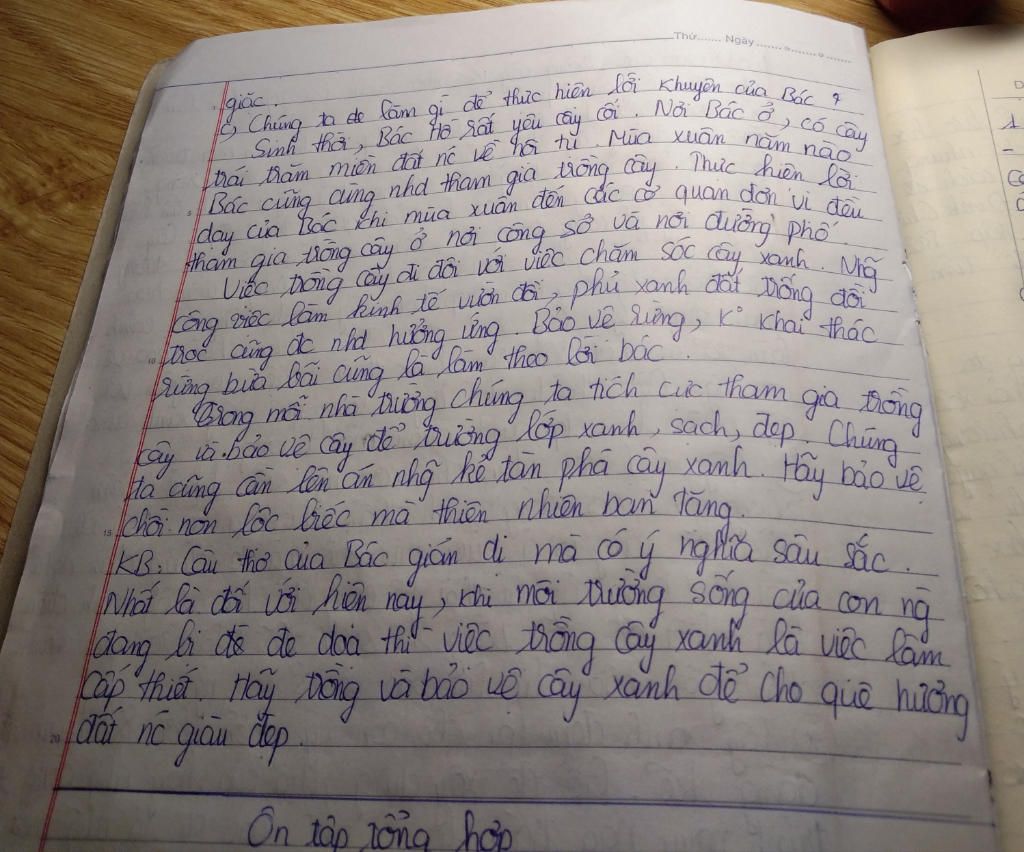 Thứ....... Ngày
giác.
c, Chúng ta đc làm gì để thực hiện lời khuyên của Bác ?
Sinh thời, Bác Hồ rất yêu cây cối. Nơi Bác ở, có cây
trái trăm miền đất nc về hội tụ. Mùa xuân năm nào
5 Bác cũng cùng nhd tham gia trồng cây. Thực hiện lời
dạy của Bác khi mùa xuân đến các cơ quan đơn vị đều
tham gia trồng cây ở nơi công sở và nơi đường phố.
Việc trồng cây đi đôi với việc chăm sóc cây xanh. Nhg
công việc làm kinh tế vườn đồi, phủ xanh đất trống đồi
10 trọc cũng đc nhd hưởng ứng. Bảo vệ rừng, K° khai thác
rừng bừa bãi cũng là làm theo lời bác.
Trong mỗi nhà trường chúng ta tích cực tham gia trồng
cây và bảo vệ cây để trường lớp xanh, sạch, đẹp. Chúng
ta cũng cần lên án nhg kẻ tàn phá cây xanh. Hãy bảo vệ
15 chồi non lộc biếc mà thiên nhiên ban tặng.
KB: Câu thơ của Bác giản dị mà có ý nghĩa sâu sắc.
Nhất là đối với hiện nay, khi môi trường sống của con ng
đang bị đe doạ thì việc trồng cây xanh là việc làm
cấp thiết. Hãy trồng và bảo vệ cây xanh để cho quê hương
20 đất nc giàu đẹp.
Ôn tập tổng hợp